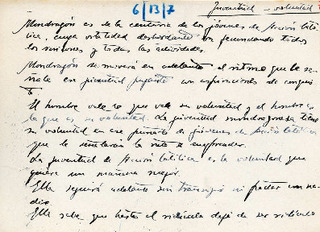 6/13/7
Juventud - voluntad
Mondragón es de la centuria de los jóvenes de Acción Cató-
lica, cuya vitalidad desbordante va fecundando todos
los rincones y todas las actividades.
Mondragón se moverá en adelante al ritmo que le se-
ñale su juventud pujante con aspiraciones de conquis
ta
El hombre vale lo que vale su voluntad y el hombre es
lo que es su voluntad. La juventud mondragonesa tiene
su voluntad en ese puñado de jóvenes de Acción Católica
que le señalarán la ruta a emprender.
La juventud de Acción Católica es la voluntad que
quiere un mañana mejor.
Ella seguirá adelante sin transigir ni pactar con na-
die
Ella sabe que hasta el ridículo deja de ser ridículo